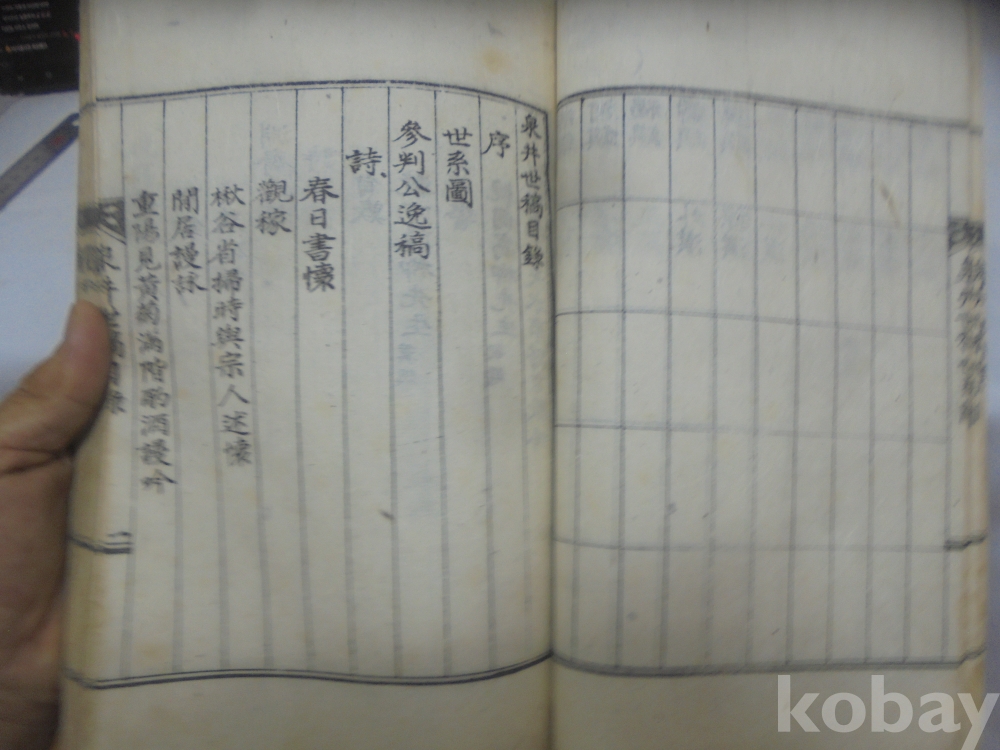 泉井世稿目錄
序
世系圖
參判公逸稿
詩
春日書懷
觀稼
楸谷省掃時與宗人述懷
閒居謾詠
重陽見黃菊滿階酌酒謾吟
泉井世稿目錄
二
kobay